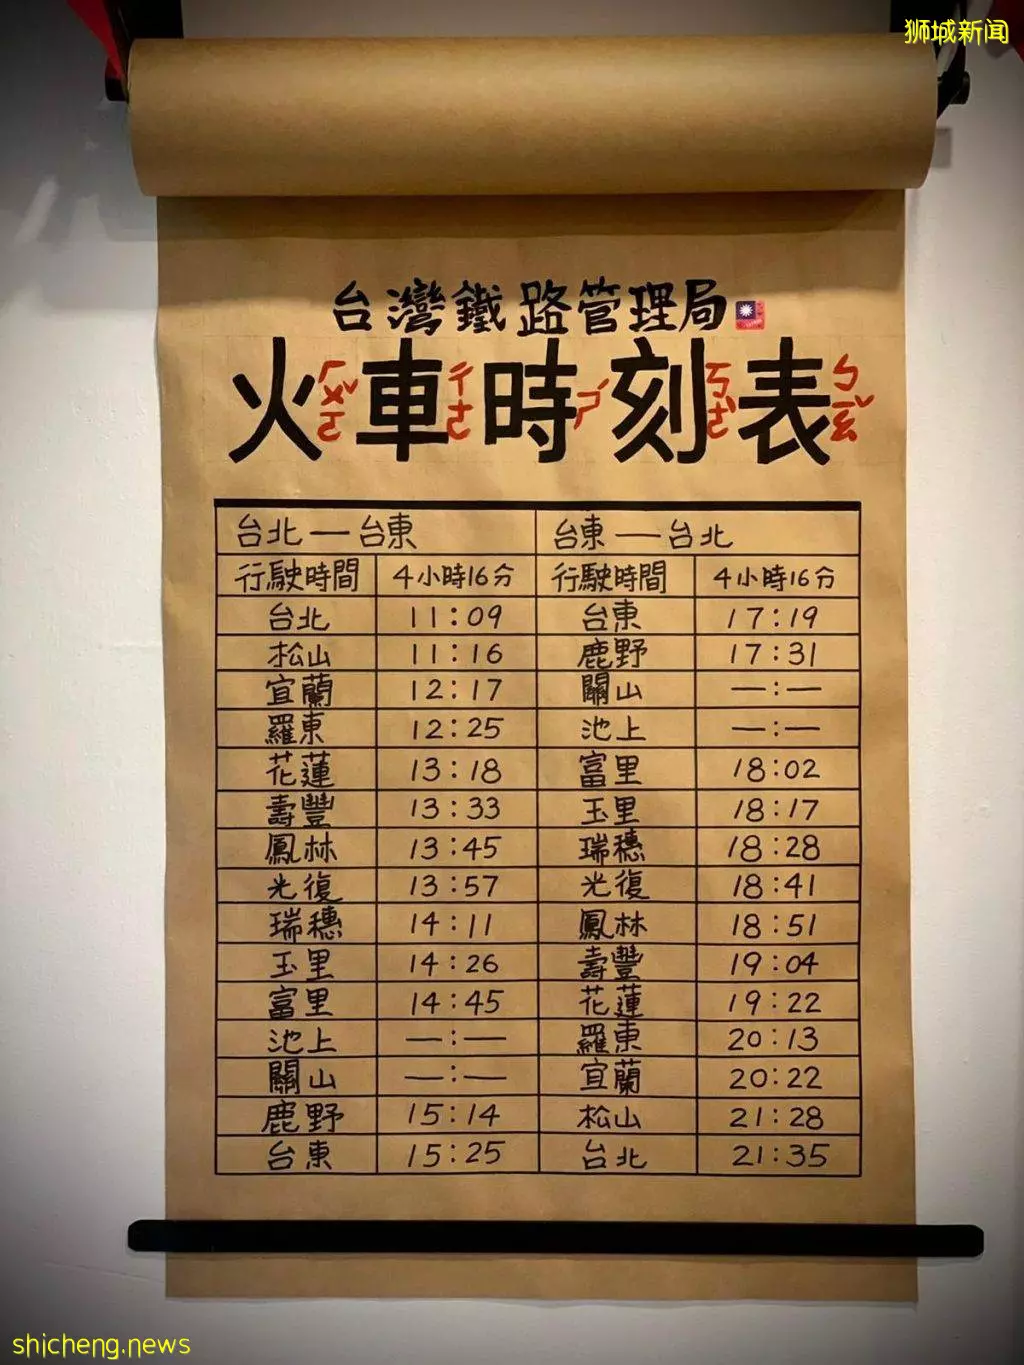 狮城新闻
台灣鐵路管理局
火車時刻表
ㄏㄨㄛˇ ㄔㄜ ㄕˊ ㄎㄜˋ ㄅㄧㄠˇ
台北—台東 台東—台北
行駛時間 4小時16分 行駛時間 4小時16分
台北 11:09 台東 17:19
松山 11:16 鹿野 17:31
宜蘭 12:17 關山 —:—
羅東 12:25 池上 —:—
花蓮 13:18 富里 18:02
壽豐 13:33 玉里 18:17
鳳林 13:45 瑞穗 18:28
光復 13:57 光復 18:41
瑞穗 14:11 鳳林 18:51
玉里 14:26 壽豐 19:04
富里 14:45 花蓮 19:22
池上 —:— 羅東 20:13
關山 —:— 宜蘭 20:22
鹿野 15:14 松山 21:28
台東 15:25 台北 21:35
shicheng.news